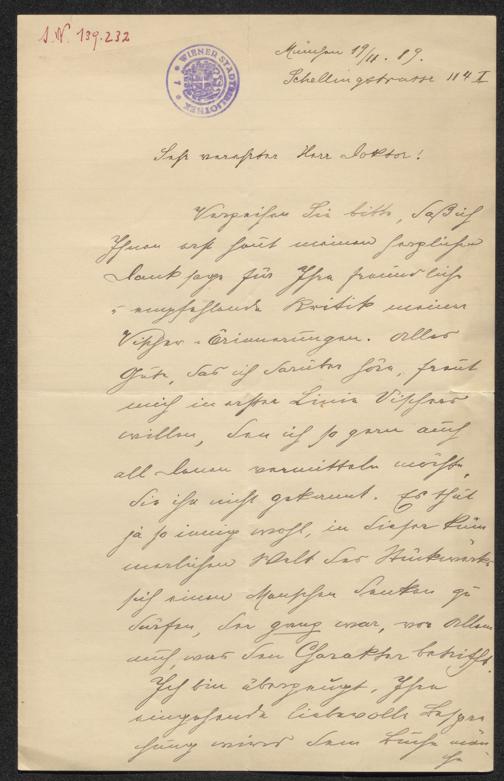 J.N. 139.232
WIENER STADTBIBLIOTHEK
München 19/11. 89.
Schellingstrasse 114 I
Sehr verehrter Herr Doktor!
Verzeihen Sie bitte, daß ich
Ihnen erst heut meinen herzlichen
Dank sage für Ihre freundliche
empfehlende Kritik meiner
Vischer-Erinnerungen. Alles
Gute, das ich darüber höre, freut
mich in erster Linie Vischers
willen, den ich so gern auch
all Denen vermitteln möchte,
die ihn nicht gekannt. Es thut
ja so innig wohl, in dieser küm
merlichen Welt des Stückwerks
sich einen Menschen denken zu
dürfen, der ganz war, vor Allem
auch, was den Charakter betrifft.
Ich bin überzeugt, Ihre
eingehende liebevolle Bespre
chung wird dem Buche man
che